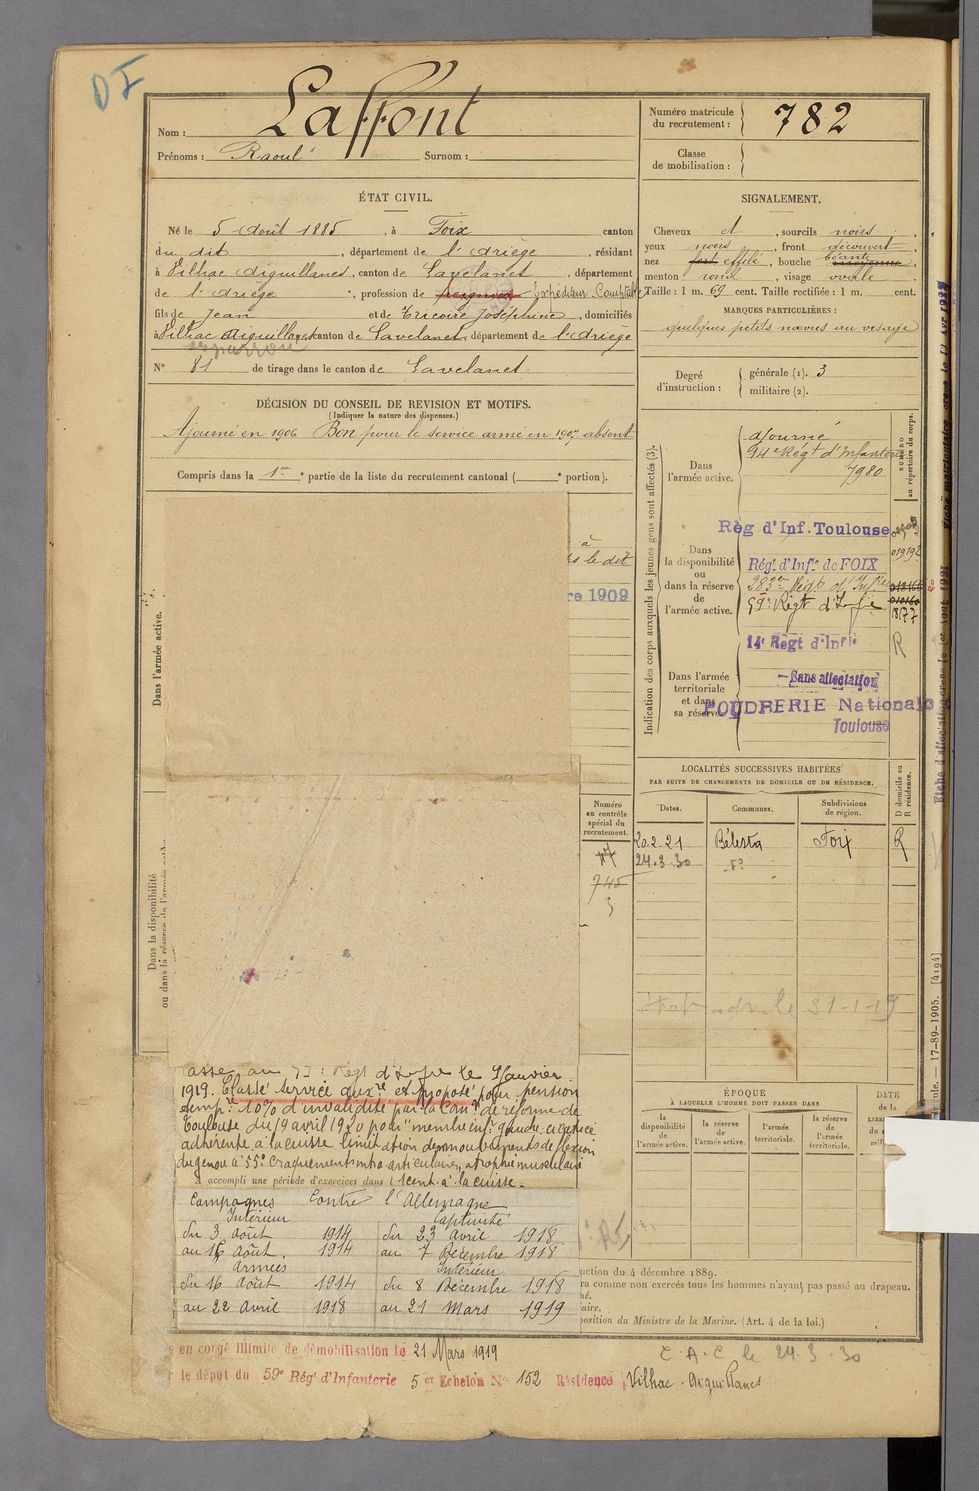 DI
Nom : Laffont
Prénoms : Raoul Surnom :
Numéro matricule du recrutement : 782
Classe de mobilisation :
ÉTAT CIVIL.
Né le 5 Août 1885, à Foix canton
du dit, département de l'Ariège, résidant
à Lilhac Aiguillanes, canton de Lavelanet, département
de l'Ariège, profession de peigneur Expéditeur Comptable
fils de Jean et de Tricoire Joséphine, domiciliés
à Lilhac Aiguillanes canton de Lavelanet, département de l'Ariège
N° 81 de tirage dans le canton de Lavelanet.
SIGNALEMENT.
Cheveux et, sourcils noirs,
yeux noirs, front découvert,
nez fort effilé, bouche béante moyenne,
menton rond, visage ovale
Taille : 1 m. 69 cent. Taille rectifiée : 1 m. cent.
MARQUES PARTICULIÈRES :
quelques petits nævus au visage
Degré d'instruction : générale (1). 3
militaire (2).
DÉCISION DU CONSEIL DE REVISION ET MOTIFS.
(Indiquer la nature des dispenses.)
Ajourné en 1906 Bon pour le service armé en 1907 absent
Compris dans la 1re partie de la liste du recrutement cantonal ( e portion).
à
le dit
re 1909
Dans l'armée active.
Dans la disponibilité
ou dans la réserve de l'armée
Indication des corps auxquels les jeunes gens sont affectés (3).
NUMÉRO au répertoire du corps.
Dans l'armée active.
ajourné
94e Régt d'Infanterie
7980
Dans la disponibilité ou dans la réserve de l'armée active.
Règ d'Inf. Toulouse
Régt d'Infie de FOIX
01919
283e Régt d'Infie
59e Régt d'Infie
1877
14e Regt d'Infie
R
Dans l'armée territoriale et dans sa réserve
Sans affectation
POUDRERIE Nationale
Toulouse
LOCALITÉS SUCCESSIVES HABITÉES
PAR SUITE DE CHANGEMENTS DE DOMICILE OU DE RÉSIDENCE.
Numéro au contrôle spécial du recrutement.
Dates. Communes. Subdivisions de région.
D domicile ou R résidence.
20-2-21 Bélesta Foix R
24.3.30 do
745
3
le 31-1-19
17-89-1905. [4194]
ÉPOQUE
À LAQUELLE L'HOMME DOIT PASSER DANS
la disponibilité de l'armée active.
la réserve de l'armée active.
l'armée territoriale.
la réserve de l'armée territoriale.
DATE de la
asse au Régt d'Infie le Janvier
1919. Classé service auxre et proposé pour pension
tempre 10% d'invalidité par la Comon de réforme de
Toulouse du 19 avril 1920 pour "membre infr gauche cicatrice
adhérente à la cuisse limitation des mouvements de flexion
du genou à 55° craquements intra articulaires, atrophie musculaire
A accompli une période d'exercices dans 1 cent. à la cuisse.
Campagnes Contre l'Allemagne
Intérieur Captivité
du 3 Août 1914 du 23 Avril 1918
au 16 Août. 1914 au 7 Décembre 1918
Armées Intérieur
du 16 Août 1914 du 8 Décembre 1918
au 22 Avril 1918 au 21 Mars 1919
uction du 4 décembre 1889.
ra comme non exercés tous les hommes n'ayant pas passé au drapeau.
né.
aire.
position du Ministre de la Marine. (Art. 4 de la loi.)
en congé illimité de démobilisation le 21 Mars 1919
le dépôt du 59e Régt d'Infanterie 5e Echelon No 152 Résidence Vilhac-Aiguillanes
C.A.C le 24.3.30